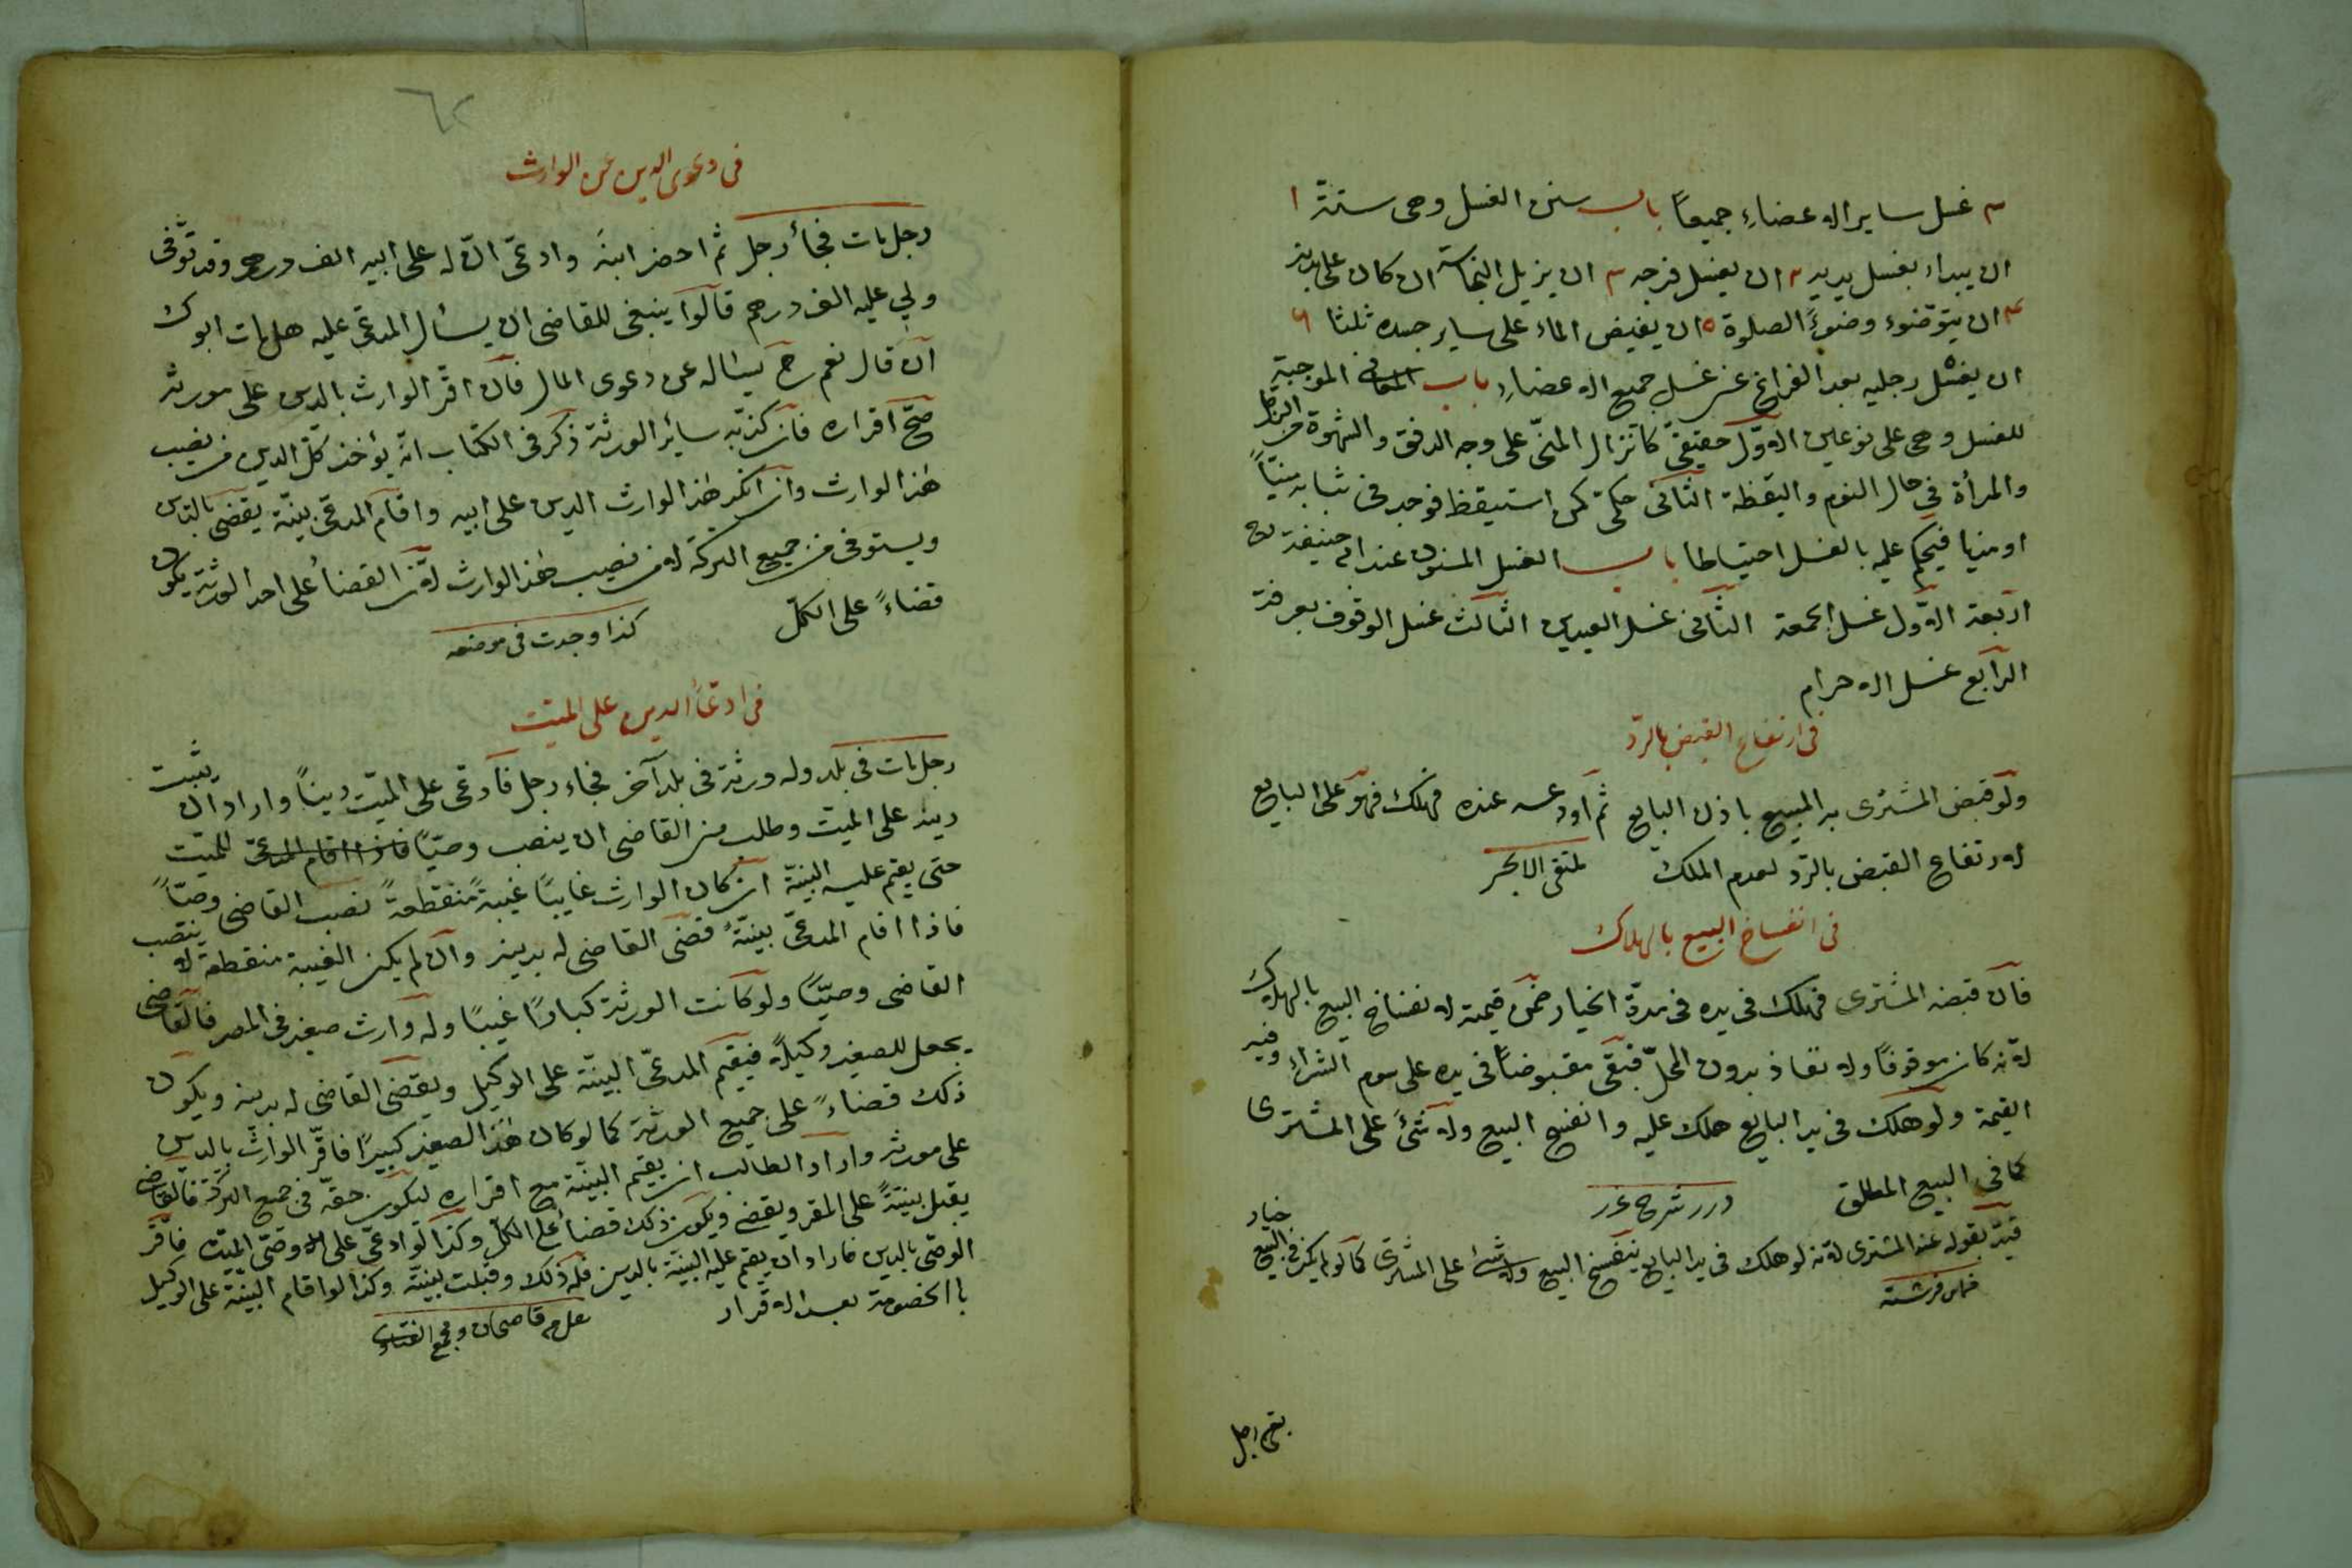 ٣ غسل ساير الاعضاء جميعاً باب سنن الغسل وهى ستة ١
ان يبداء بغسل يديه ٢ ان يغسل فرجه ٣ ان يزيل النجاسة ان كان على بدنه
٤ ان يتوضوء وضوءً الصلوة ٥ ان يفيض الماء على ساير جسده ثلثا ٦
ان يغسل رجليه بعد الفراغ عن غسل جميع الاعضاء باب المعانى الموجبة
للغسل وهى على نوعين الاول حقيقىّ كانزال المنىّ على وجه الدفق والشهوة من الرجل
والمرأة فى حال النوم واليقظة الثانى حكمىّ كمن استيقظ فوجد فى ثيابه منيّاً
او مذيا فيحكم عليه بالغسل احتياطا باب الغسل المسنون عند ابى حنيفة رح
اربعة الاول غسل الجمعة الثانى غسل العيدين الثالث غسل الوقوف بعرفة
الرابع غسل الاحرام
فى ارتفاع القبض بالردّ
ولو قبض المشترى المبيع باذن البايع ثم اودعه عنده فهلك فهو على البايع
لارتفاع القبض بالردّ لعدم الملك ملتقى الابحر
فى انفساخ البيع بالهلاك
فان قبضه المشترى فهلك فى يده فى مدّة الخيار ضمن قيمته لانفساخ البيع بالهلاك
لانه كان موقوفاً ولا نفاذ بدون المحلّ فبقى مقبوضاً فى يده على سوم الشراء وفيه
القيمة ولو هلك فى يد البايع هلك عليه وانفسخ البيع ولا شئ على المشترى
كما فى البيع المطلق درر شرح غرر
قيّد بقوله عند المشترى لانه لو هلك فى يد البايع ينفسخ البيع ولا شئ على المشترى كما لو لم يكن فى البيع خيار
فرشته
رجل
٦٢
فى دعوى الدين عن الوارث
رجل مات فجأ رجل ثم احضر ابنه وادعى انّ له على ابيه الف درهم وقد توفى
ولى عليه الف درهم قالوا ينبغى للقاضى ان يسأل المدعى عليه هل مات ابوك
ان قال نعم ح يسأله عن دعوى المال فان اقرّ الوارث بالدين على مورثه
صحّ اقراره فان كذّبه سائر الورثة ذكر فى الكتاب انه يؤخذ كلّ الدين من نصيب
هذا الوارث وان انكر هذا الوارث الدين على ابيه واقام المدعى بينة يقضى بالدين
ويستوفى من جميع التركة لا من نصيب هذا الوارث لان القضاء على احد الورثة يكون
قضاءً على الكلّ كذا وجدت فى موضعه
فى ادعاء الدين على الميت
رجل مات فى بلد وله ورثة فى بلد آخر فجاء رجل فادعى على الميت ديناً واراد ان يثبت
دينه على الميت وطلب من القاضى ان ينصب وصيّاً فاذا اقام المدعى للميت
حتى يقيم عليه البينة ان كان الوارث غايباً غيبةً منقطعةً نصب القاضى وصيّاً
فاذا اقام المدعى بينةً قضى القاضى له بدينه وان لم يكن الغيبة منقطعة لا ينصب
القاضى وصيّاً ولو كانت الورثة كباراً غيباً وله وارث صغير فى المصر فالقاضى
يجعل للصغير وكيلاً فيقيم المدعى البينة على الوكيل ويقضى القاضى له بدينه ويكون
ذلك قضاءً على جميع الورثة كما لو كان هذا الصغير كبيراً فاقرّ الوارث بالدين
على مورثه واراد الطالب ان يقيم البينة مع اقراره ليكون حقه فى جميع التركة فالقاضى
يقبل بينةً على المقر ويقضى ويكون ذلك قضاءً على الكلّ وكذا لو ادعى على وصى الميت فاقرّ
الوصى بالدين فاراد ان يقيم عليه البينة بالدين فله ذلك وقبلت بينة وكذا لو اقام البينة على الوكيل
بالخصومة بعد الاقرار قاضيخان ومجمع الفتاوى